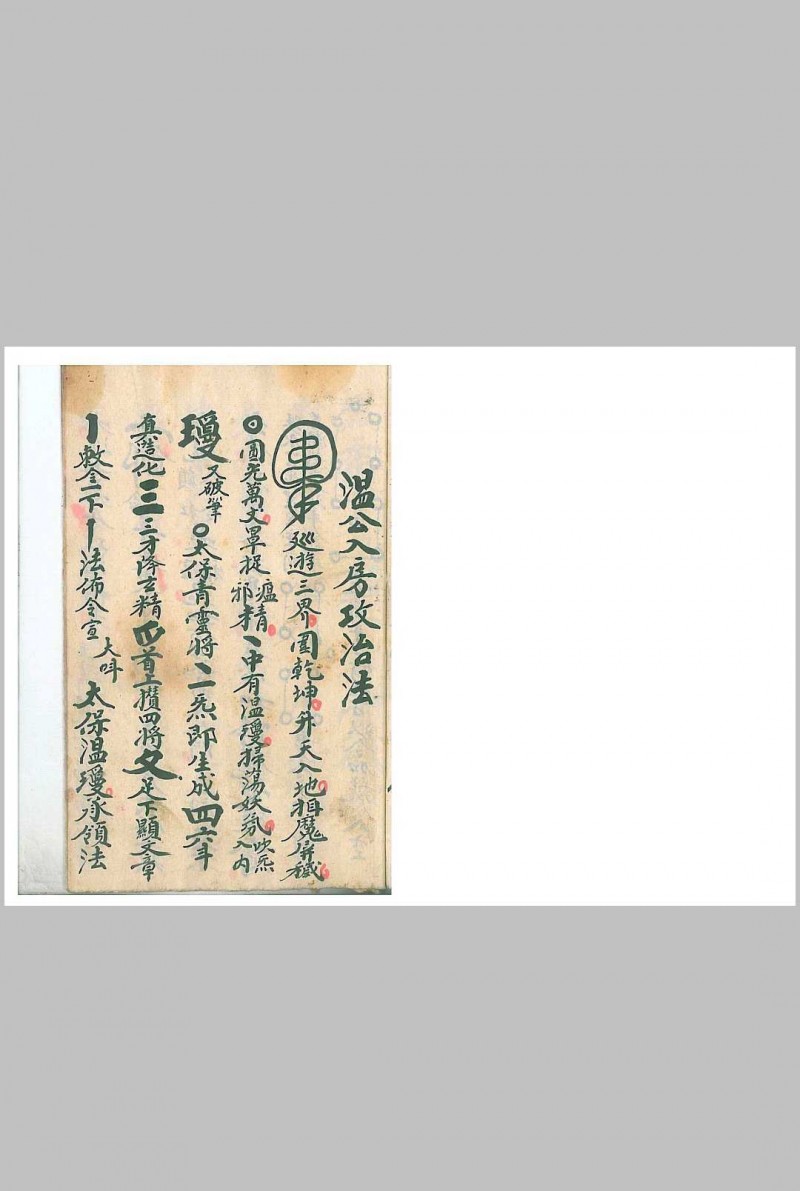 温公入房攻治法
巡遊三界圍乾坤斗天入地楫魔屏穢
圓光萬丈罩捉瘟邪精中有温瓊掃蕩妖氛吹炁入内
瓊又破筆太保青靈將二炁即生成四六年
真造化三三才降玄精爪首上攢四將攵足下顯文章
敕令一下法佈令宣大呌太保温瓊承領法